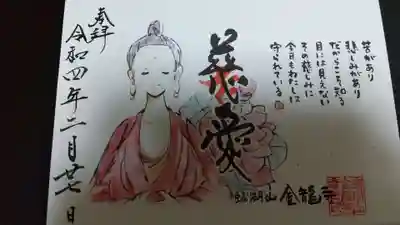 苦があり
悲しみがあり
だからこそ
目には見えない
その慈しみに
今日もわたしは
守られている
慈愛
金龍寺
奉拝
令和四年二月廿七日